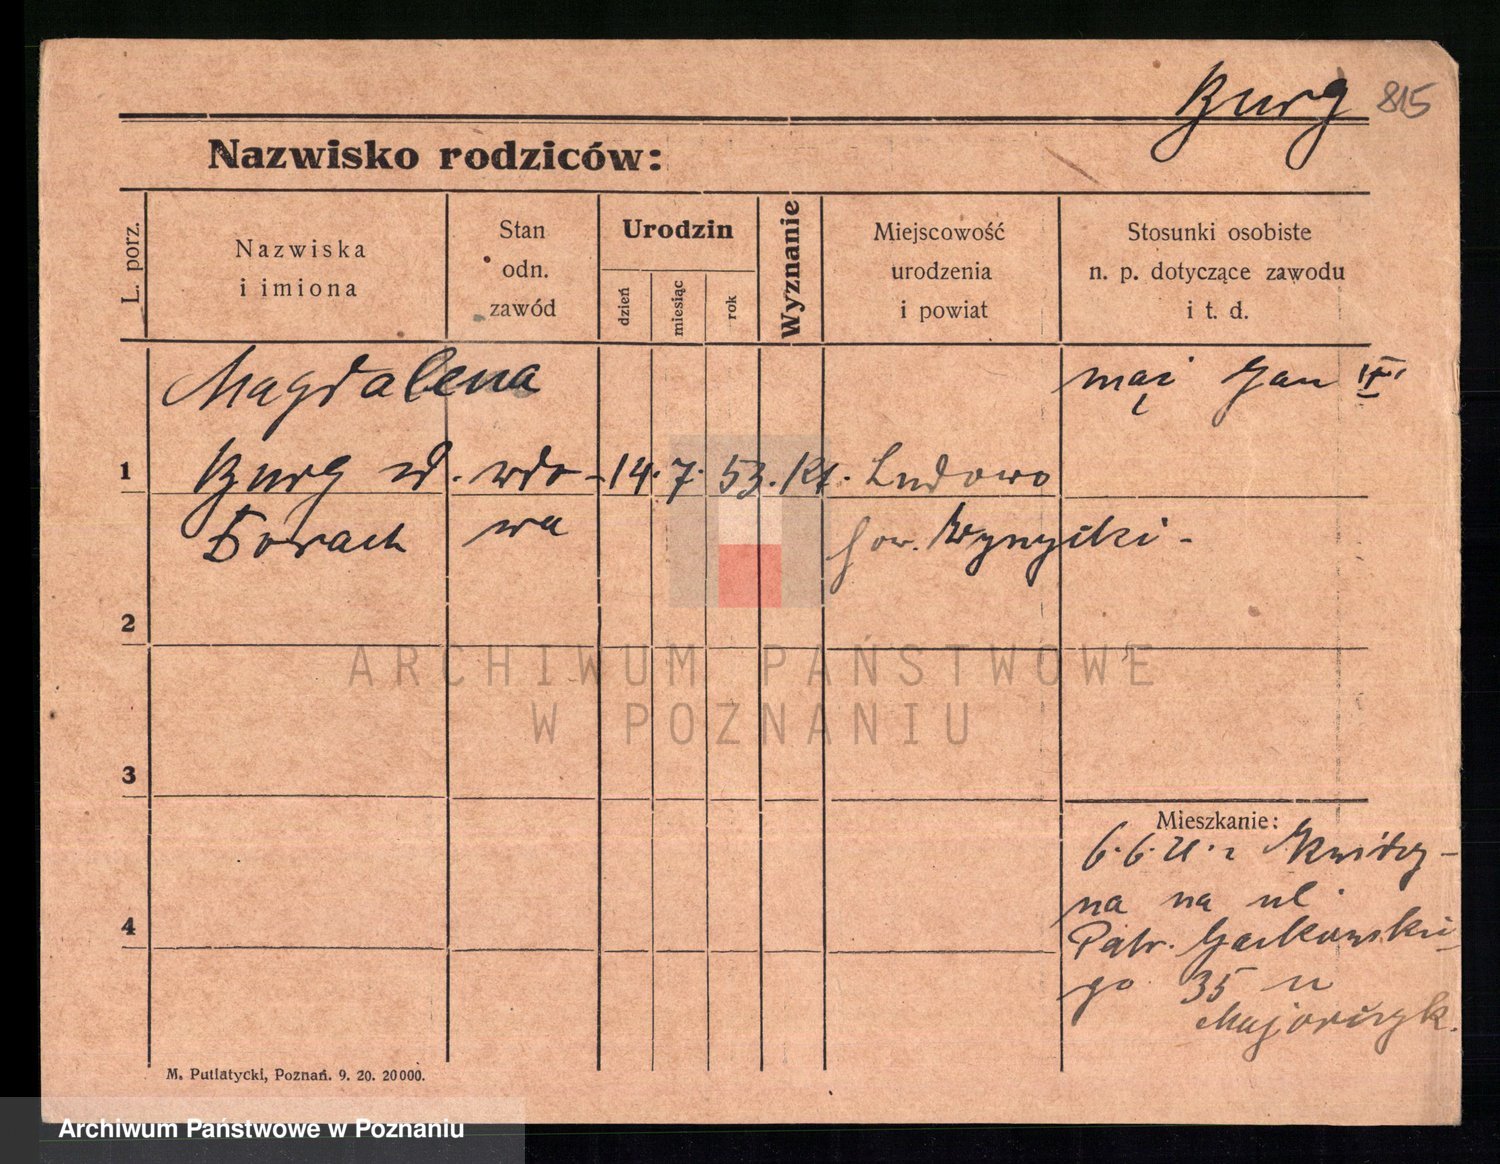 Burg 815
Nazwisko rodziców:
L. porz.
Nazwiska
i imiona
Stan
odn.
zawód
Urodzin
dzień
miesiąc
rok
Wyznanie
Miejscowość
urodzenia
i powiat
Stosunki osobiste
n. p. dotyczące zawodu
i t. d.
Magdalena mąż Jan
1 Burg wdo- 14. 7. 53. kt. Ludowo
wa pow.
2
3
4
Mieszkanie:
6.6.21. z
na na ul.
Patr. Jackowskie
go 35 u
ARCHIWUM PAŃSTWOWE
W POZNANIU
M. Putiatycki, Poznań. 9. 20. 20000.
Archiwum Państwowe w Poznaniu